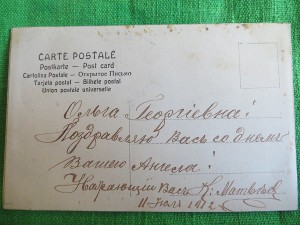 CARTE POSTALE
Postkarte — Post card
Cartolina Postale — Открытое Письмо
Tarjeta postal — Bilhete postal
Union postale universelle
Ольга Георгіевна!
Поздравляю Васъ со днемъ
Вашего Ангела!
Уважающій Васъ К. Матвѣевъ
11 Іюля 1912